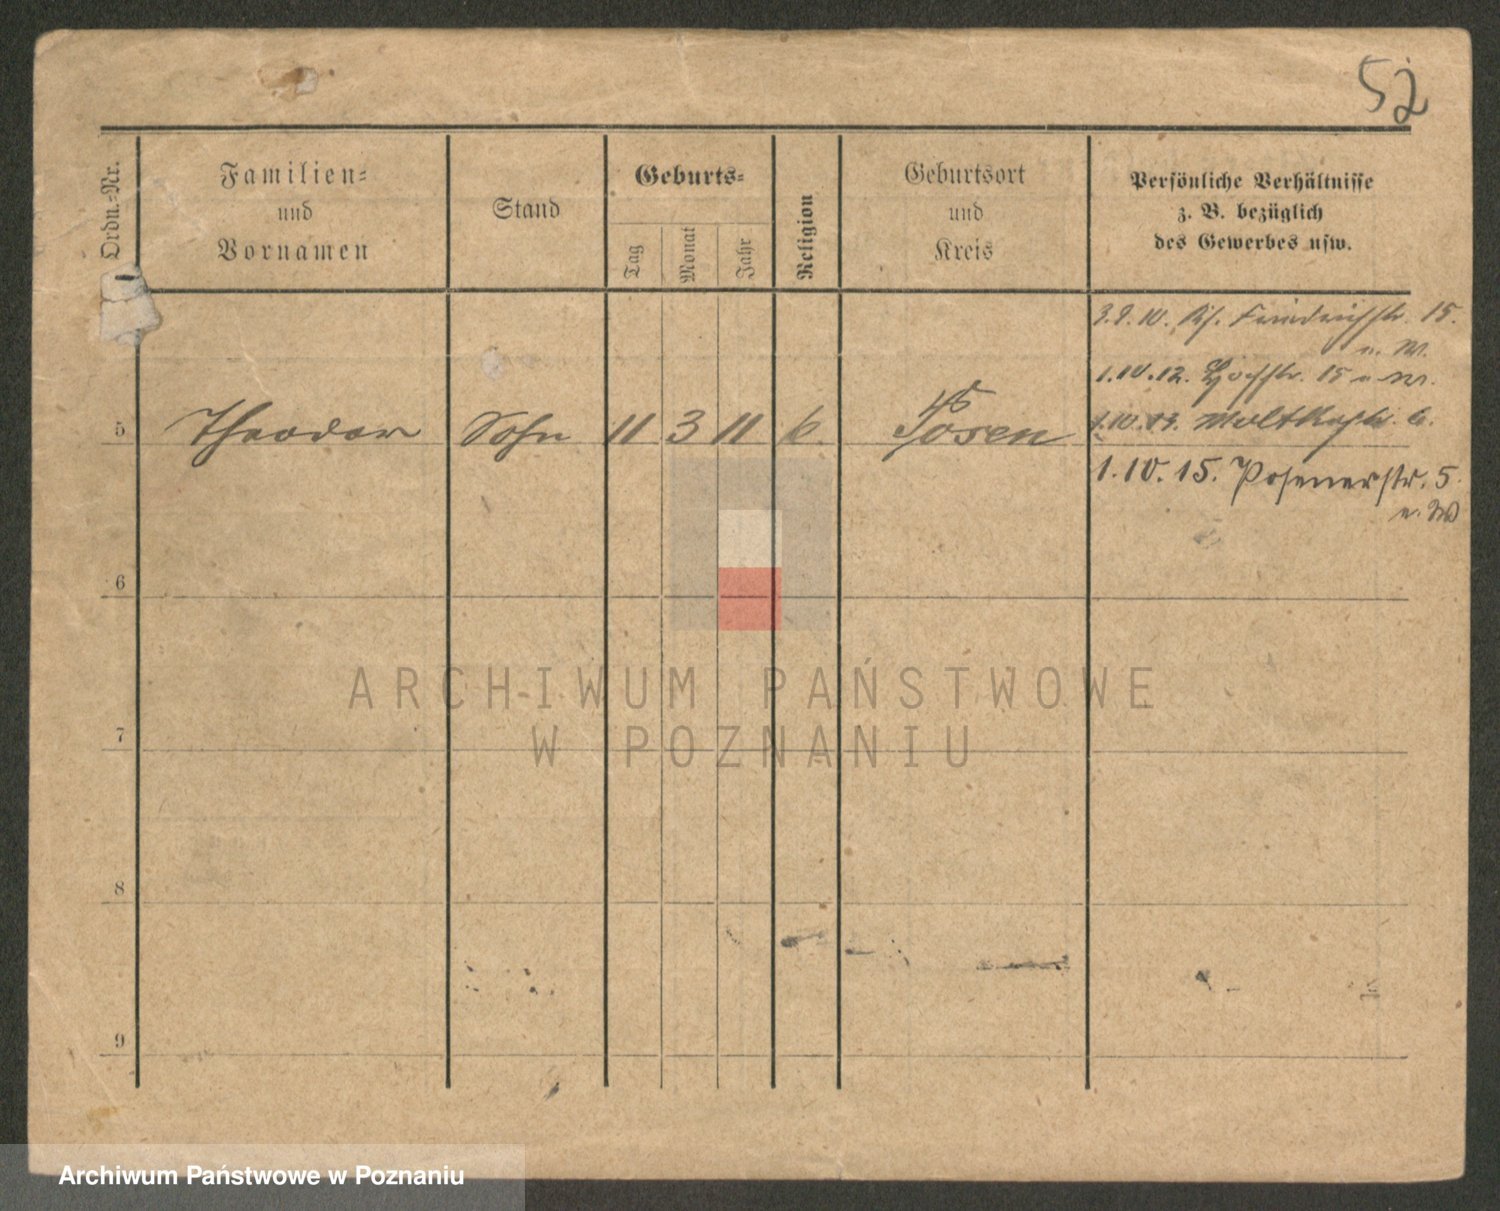 52
Ordn.-Nr.
Familien-
und
Vornamen
Stand
Geburts-
Tag
Monat
Jahr
Religion
Geburtsort
und
Kreis
Persönliche Verhältnisse
z. B. bezüglich
des Gewerbes usw.
10. Friedrichstr. 15.
u. W.
1.10.12. 15 u. W.
5 Theodor Sohn 11 3 11 Posen
10.13. Moltkestr.
1.10.15. Posenerstr. 5.
u. W
6
7
8
9
ARCHIWUM PAŃSTWOWE
W POZNANIU
Archiwum Państwowe w Poznaniu